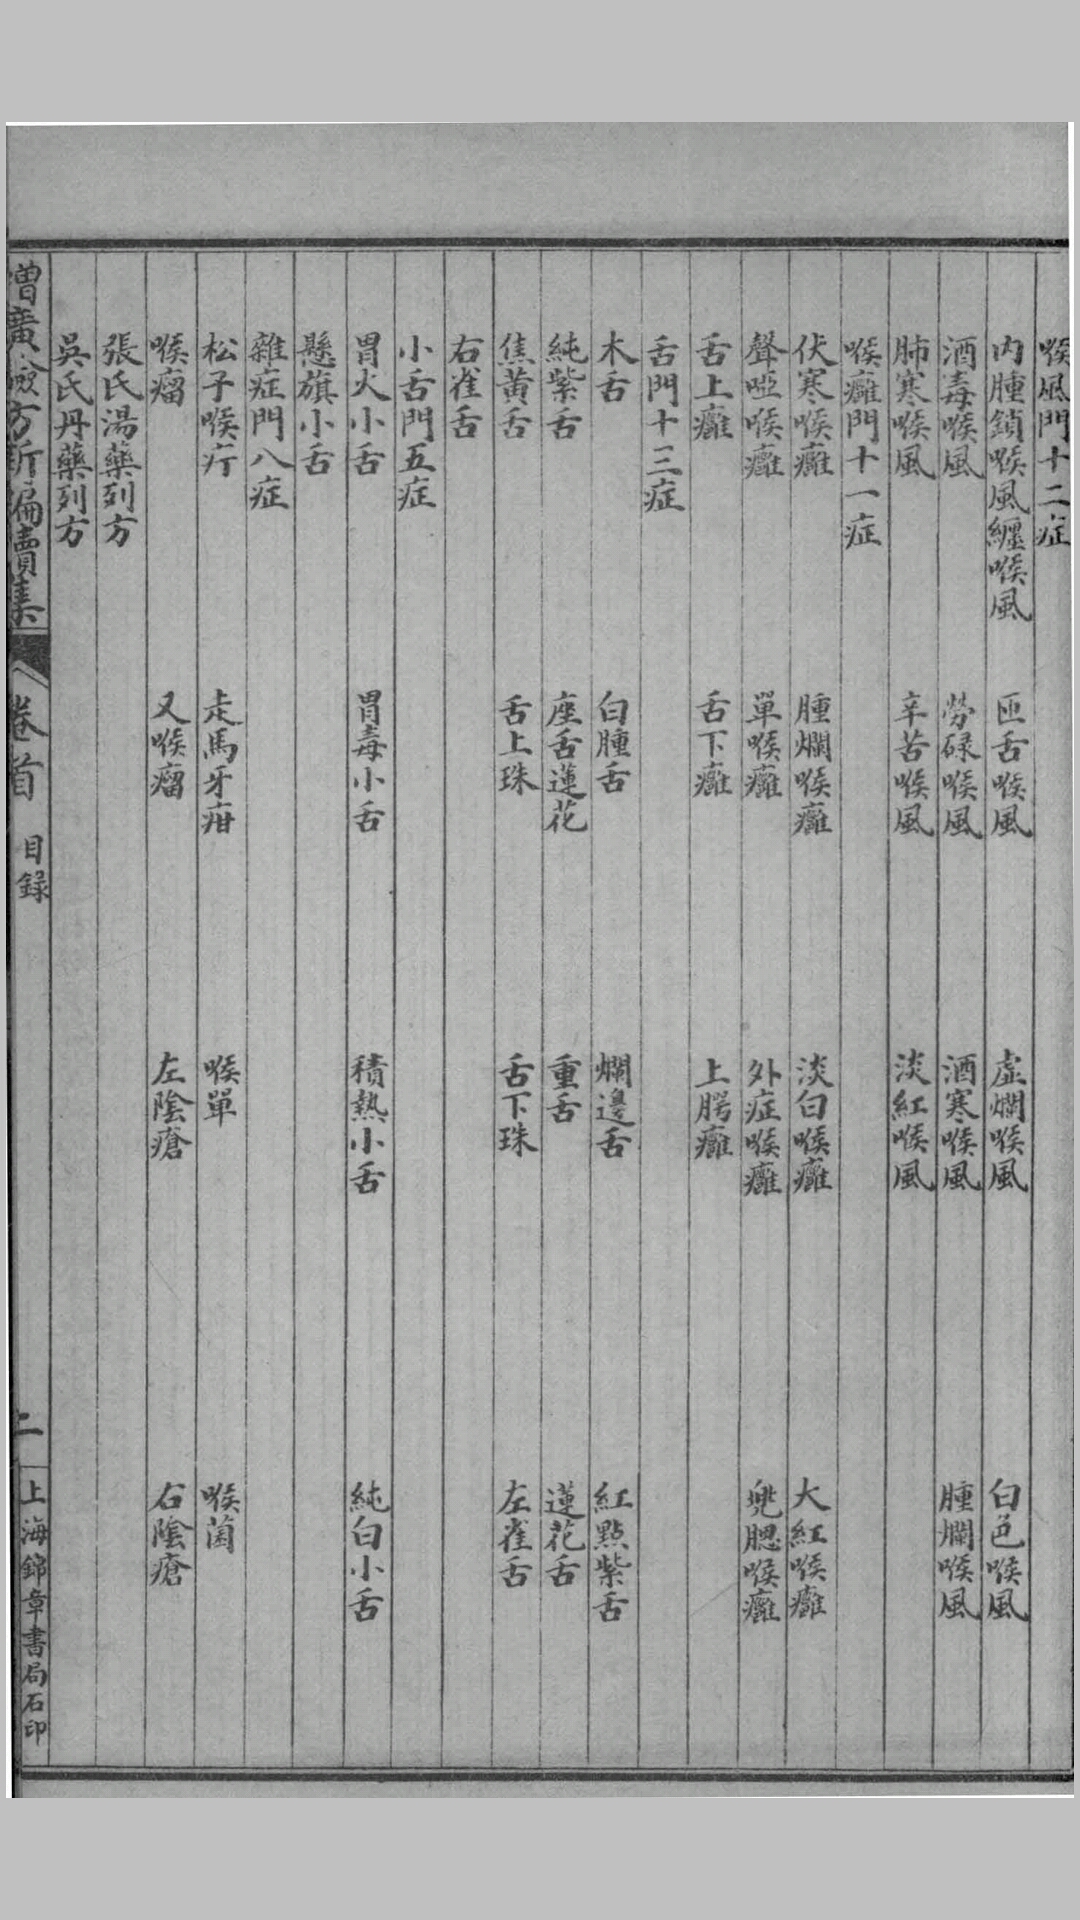 喉風門十二症
內腫鎖喉風纏喉風　匝舌喉風　虛爛喉風　白色喉風
酒毒喉風　勞碌喉風　酒寒喉風　腫爛喉風
肺寒喉風　辛苦喉風　淡紅喉風
喉癰門十一症
伏寒喉癰　腫爛喉癰　淡白喉癰　大紅喉癰
聲啞喉癰　單喉癰　外症喉癰　兠腮喉癰
舌上癰　舌下癰　上腭癰
舌門十三症
木舌　白腫舌　爛邊舌　紅點紫舌
純紫舌　座舌蓮花　重舌　蓮花舌
焦黃舌　舌上珠　舌下珠　左雀舌
右雀舌
小舌門五症
胃火小舌　胃毒小舌　積熱小舌　純白小舌
懸旗小舌
雜症門八症
松子喉疔　走馬牙疳　喉單　喉菌
喉瘤　又喉瘤　左陰瘡　右陰瘡
張氏湯藥列方
吳氏丹藥列方
增廣驗方新編續集　卷首　目錄　二　上海錦章書局石印